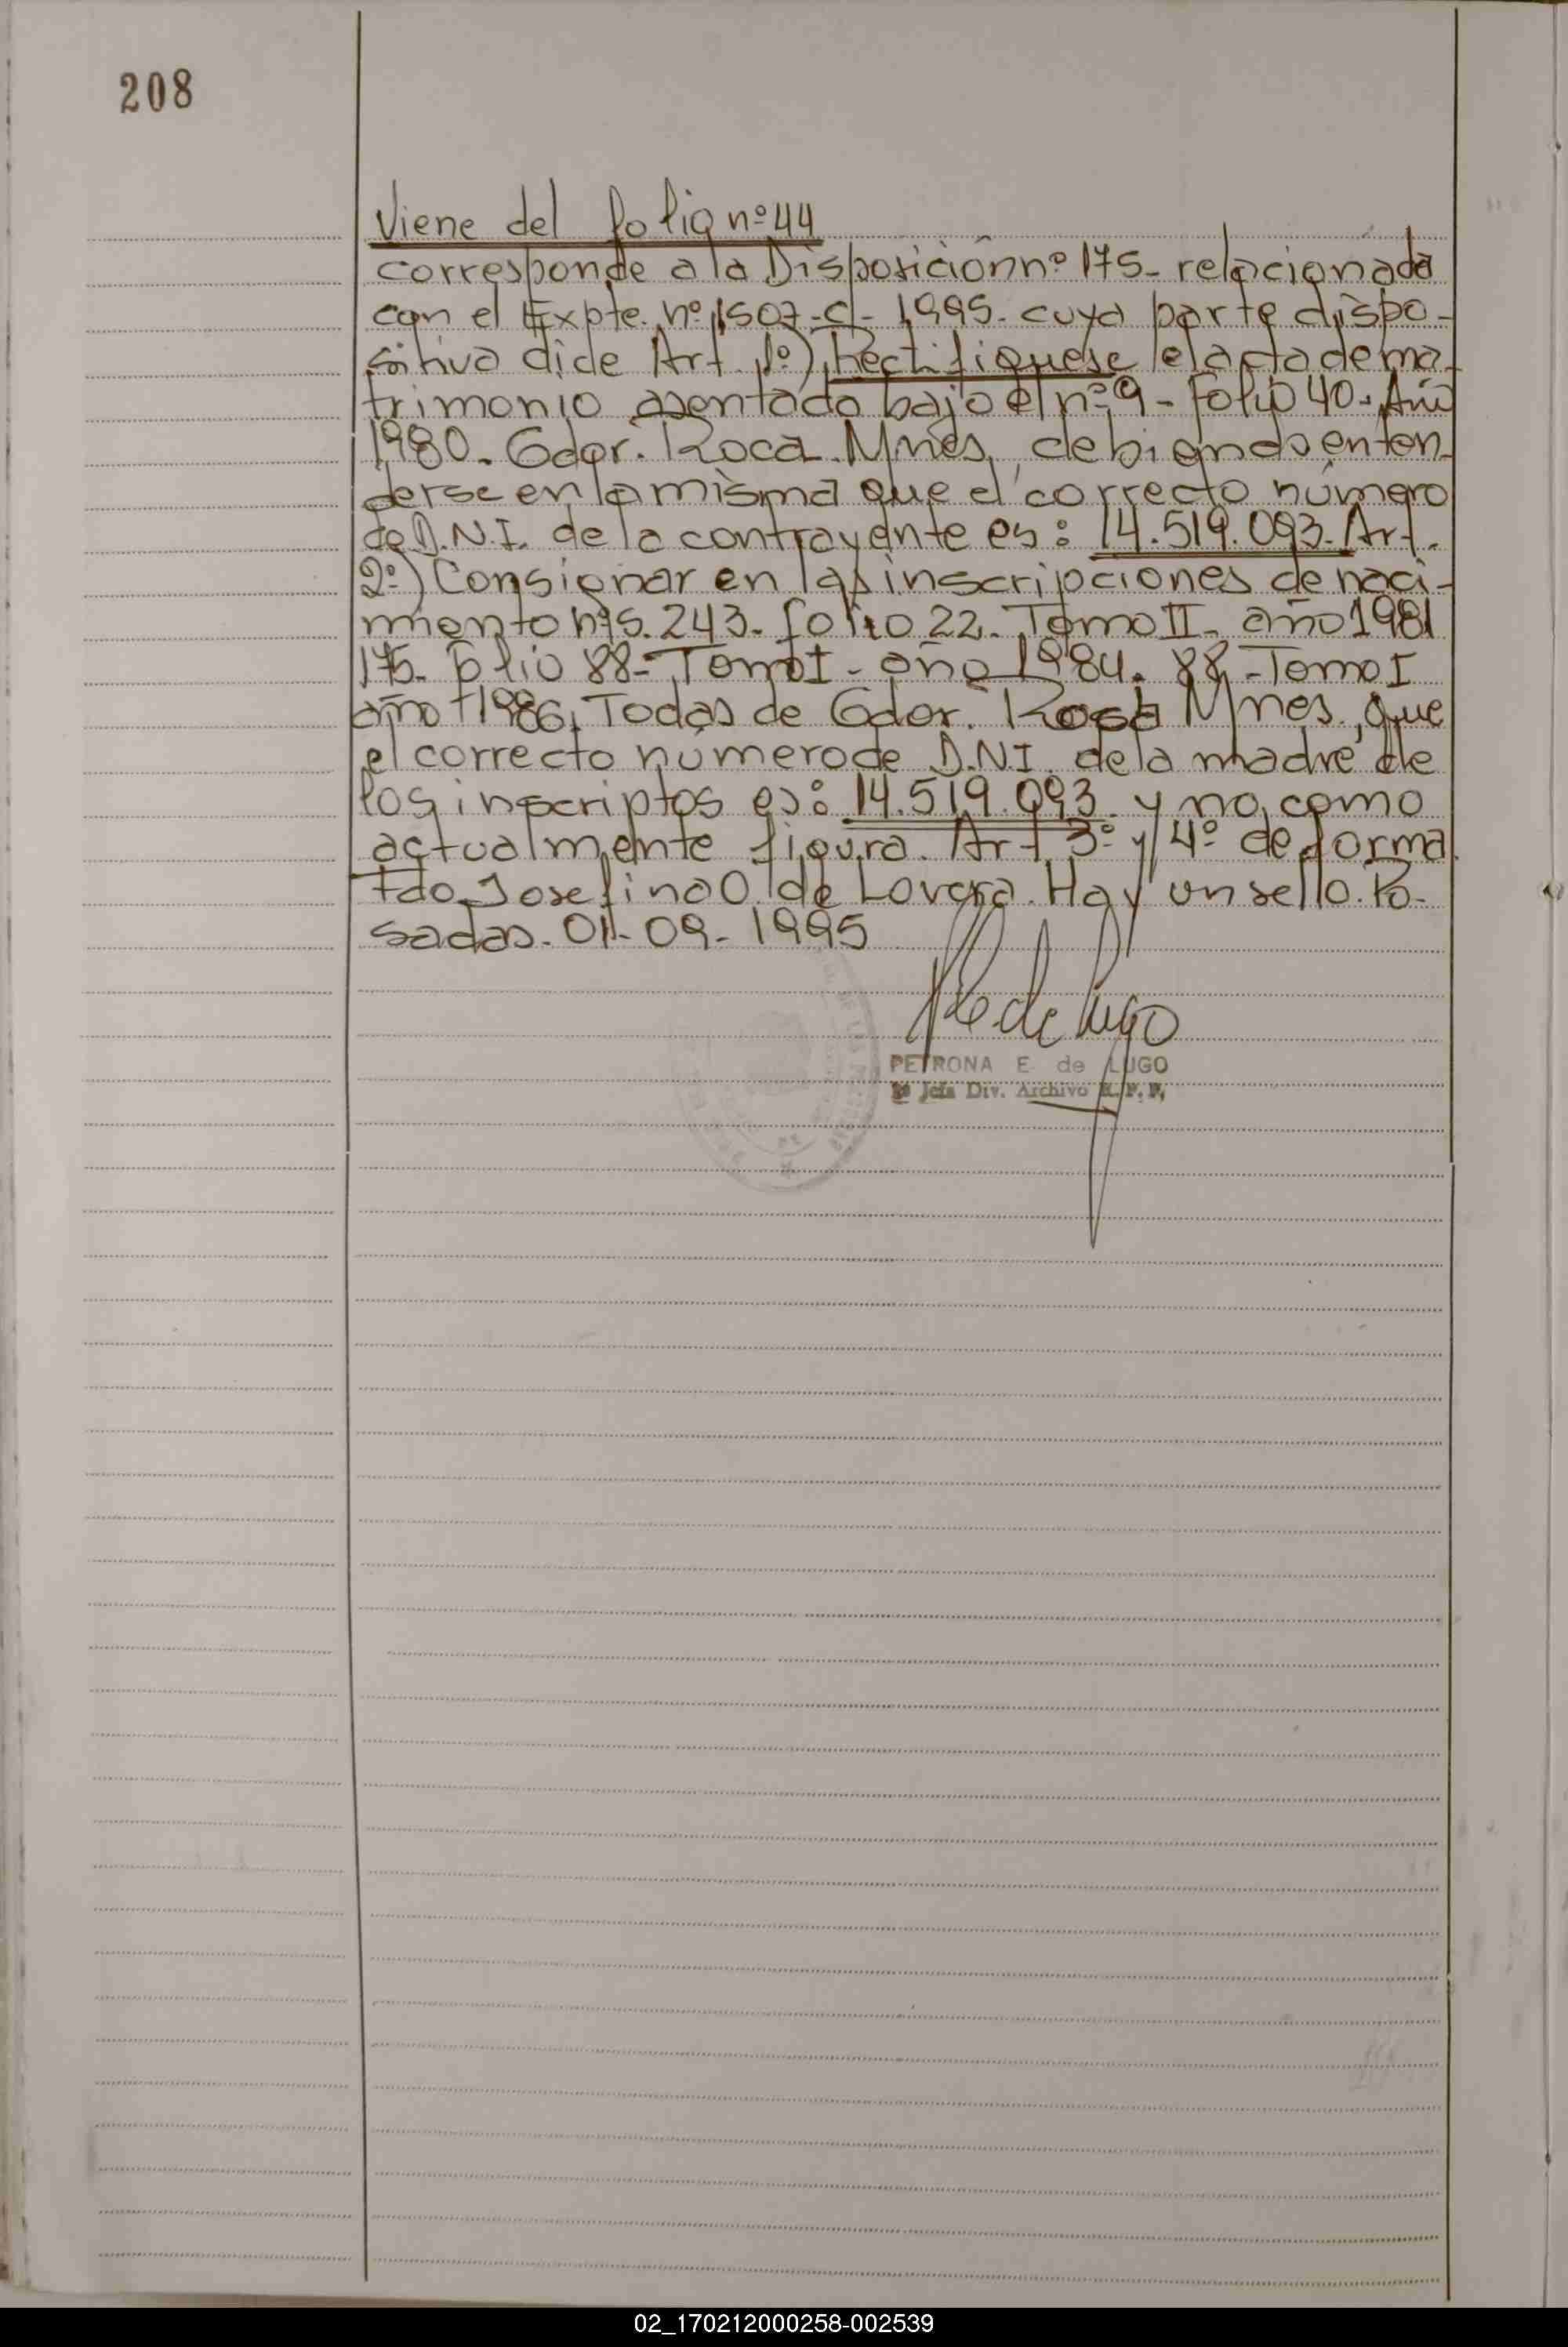 208
Viene del folio nº 44
corresponde a la Disposición nº 175- relacionada
con el Expte. nº 1507-C- 1995- cuya parte dispo-
sitiva dide Art. 1º) Rectifiquese el acta de ma-
trimonio asentado bajo el nº 9 - Folio 40- Año
1980. Gdor. Roca. Mnes, debiendo enten-
derse en la misma que el correcto número
de D.N.I. de la contrayente es: 14.519.093. Art.
2º) Consignar en las inscripciones de naci-
miento nºs. 243- folio 22- Tomo II- año 1981
175- folio 88- Tomo I - año 1984. 88 - Tomo I
año 1986, Todas de Gdor. Roca Mnes, que
el correcto número de D.N.I. de la madre de
los inscriptos es: 14.519.093. y no como
actualmente figura. Art. 3º y 4º de forma.
Fdo. Josefina O. de Lovera. Hay un sello. Po-
sadas. 01- 09- 1995
PETRONA E. de LUGO
Jefa Div. Archivo R. P. P.
02_170212000258-002539